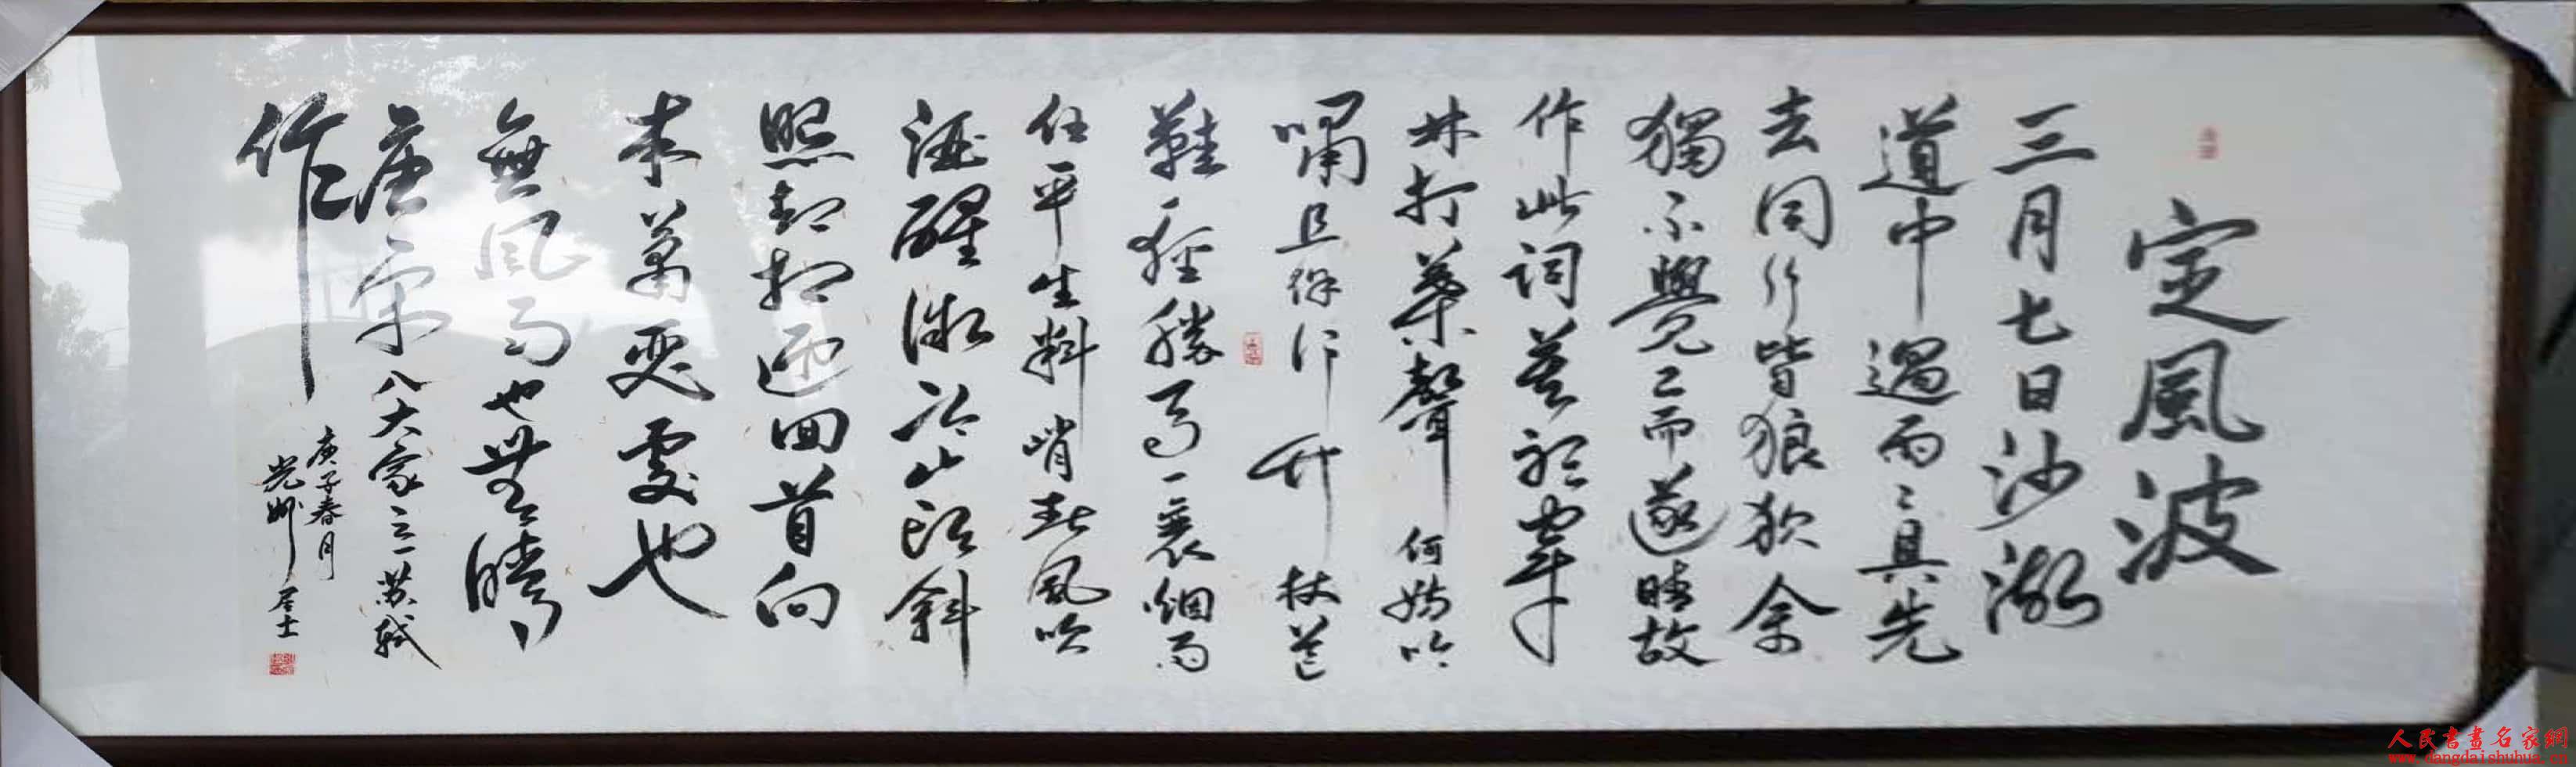 定風波
三月七日沙湖
道中遇雨〻具先
去同行皆狼狈余
獨不覺已而遂晴故
作此詞莫聽穿
林打葉聲何妨吟
嘯且徐行竹杖芒
鞋輕勝馬一蓑烟雨
任平生料峭春風吹
酒醒微冷山頭斜
照却相迎回首向
来萧瑟處也
無風雨也無晴
唐宋八大家之一苏轼
作
庚子春月
光州居士
人民書畫名家網
www.dangdaishuhua.cn